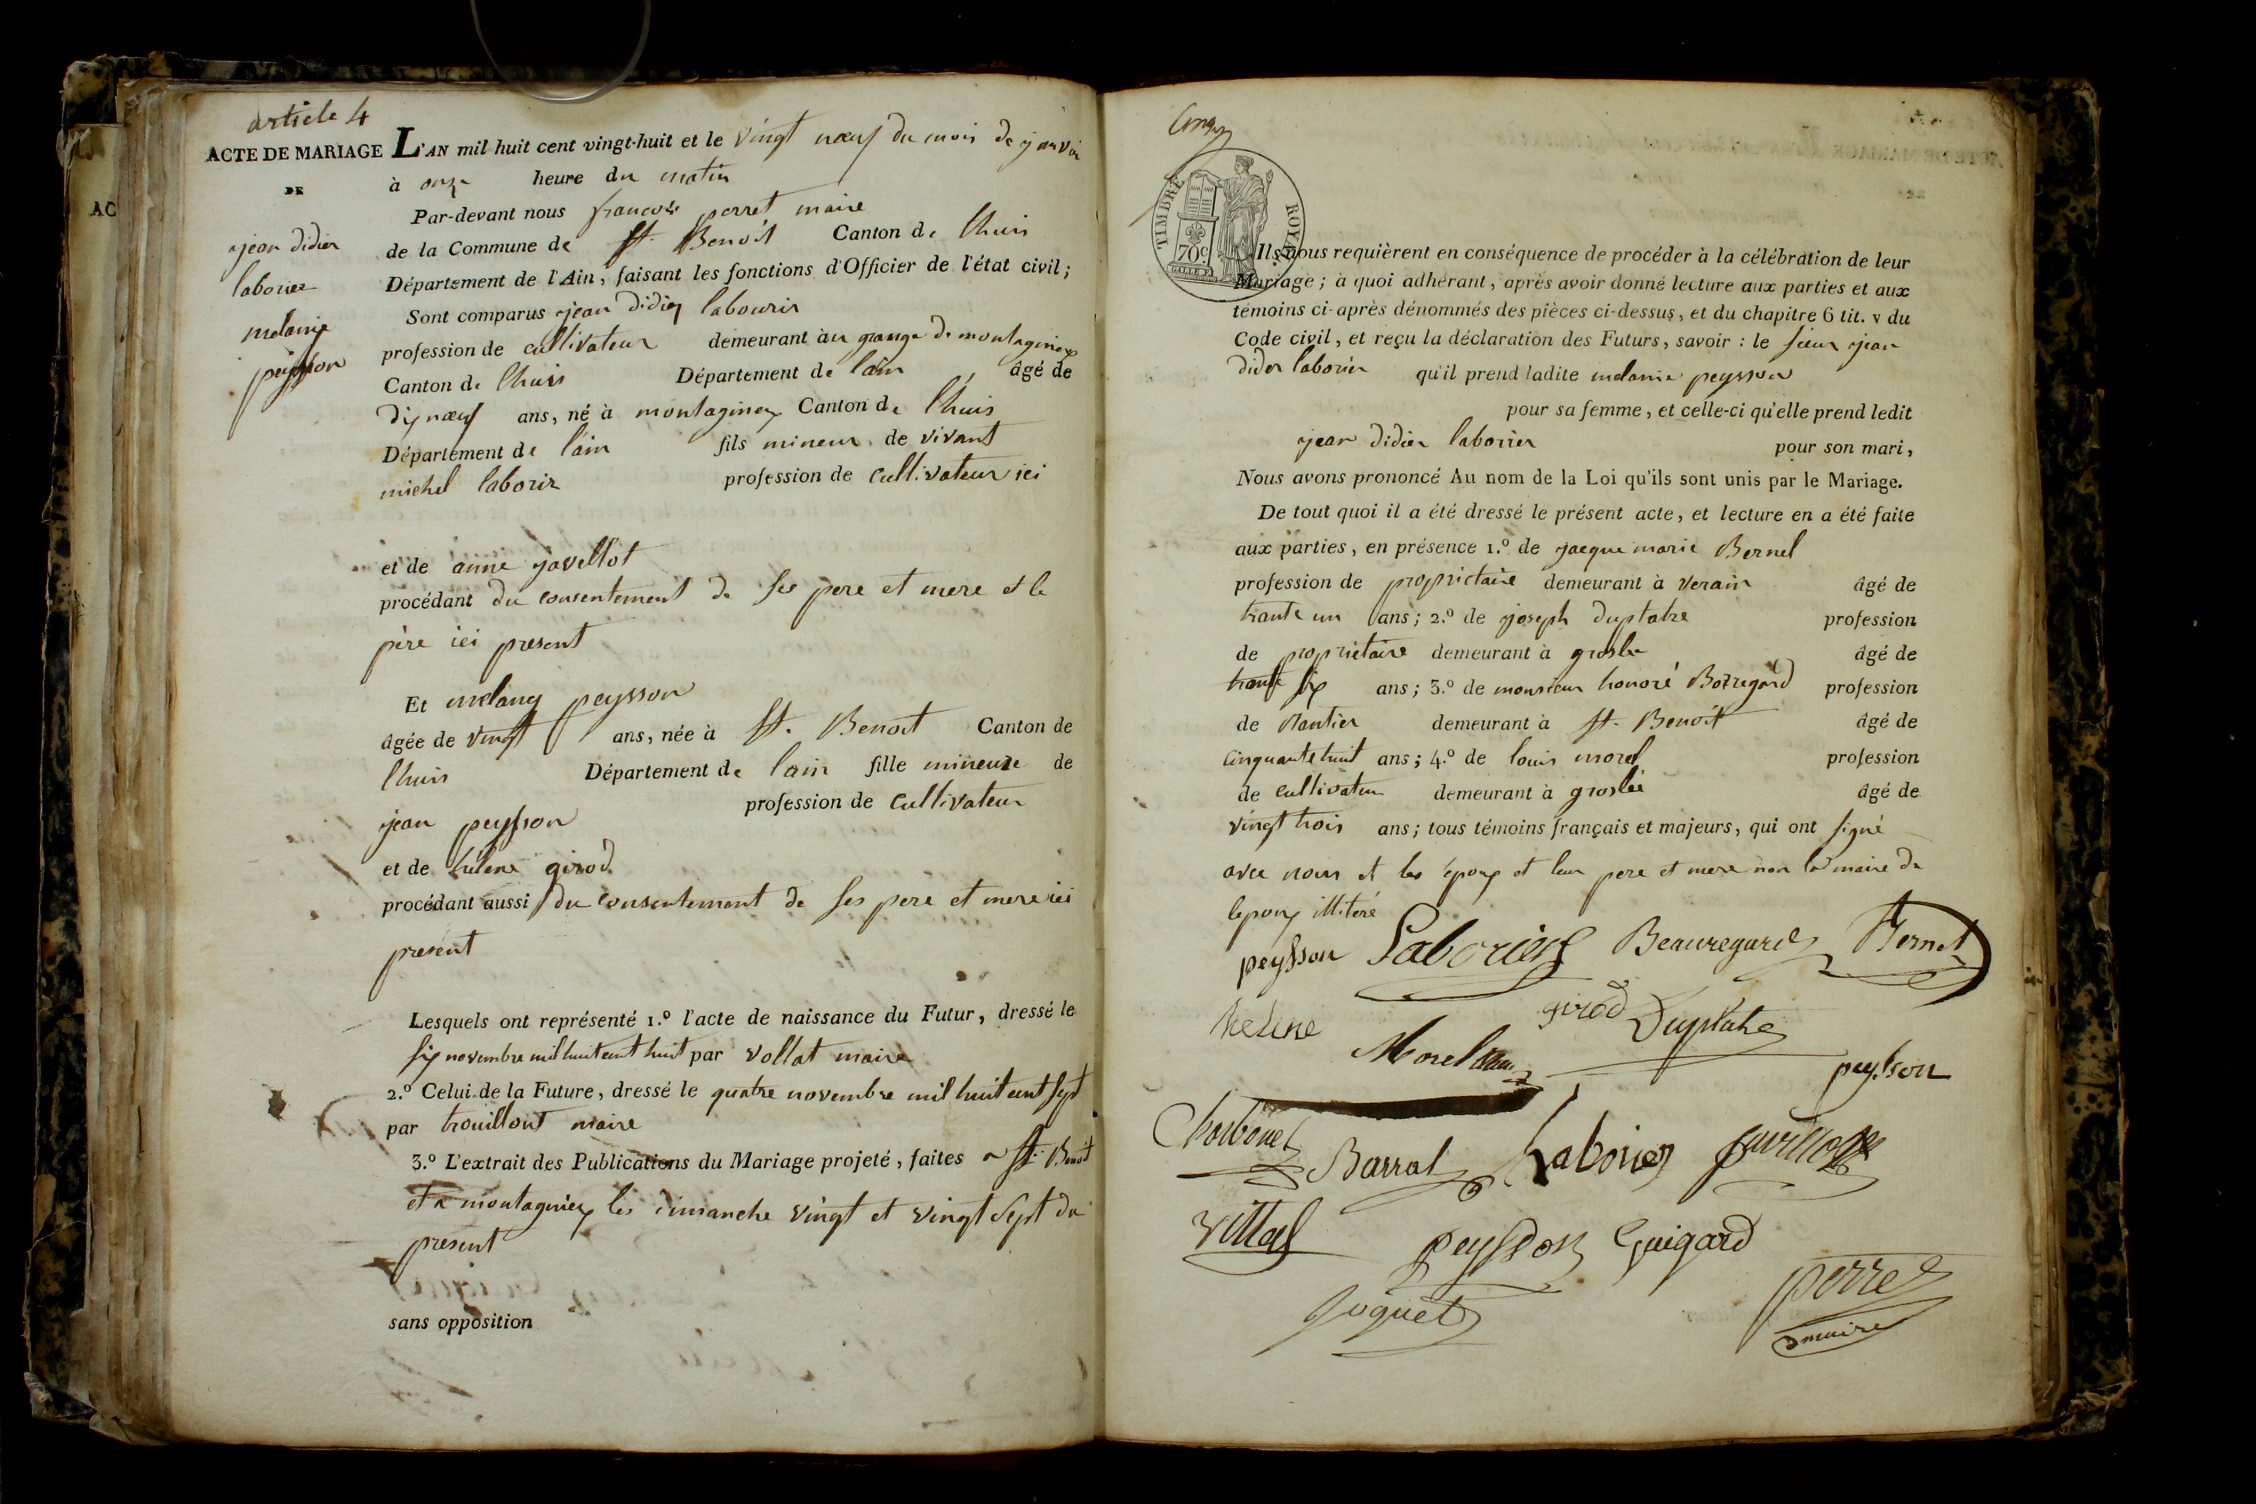 article 4
ACTE DE MARIAGE
DE
jean didier
laborier
melanie
peysson
AC
L'AN mil huit cent vingt-huit et le vingt nœuf du mois de janvier
à onze heure du matin
Par-devant nous francois perret maire
de la Commune de St. Benoit Canton de lhuis
Département de l'Ain, faisant les fonctions d'Officier de l'état civil;
Sont comparus jean didier labourir
profession de cultivateur demeurant au grange de montagniex
Canton de lhuis Département de lain âgé de
dix nœuf ans, né à montagniex Canton de lhuis
Département de lain fils mineur de vivant
michel laborir profession de cultivateur ici
et de anne javellot
procédant du consentement de ses pere et mere et le
père ici present
Et melany peysson
âgée de vingt ans, née à St. Benoit Canton de
lhuis Département de lain fille mineure de
jean peysson profession de cultivateur
et de hélene girod
procédant aussi du consentement de ses pere et mere ici
present
Lesquels ont représenté 1.º l'acte de naissance du Futur, dressé le
six novembre mil huit cent huit par vollat maire
2.º Celui de la Future, dressé le quatre novembre mil huit cent sept
par trouillont maire
3.º L'extrait des Publications du Mariage projeté, faites a St. Benoit
et a montagniex les dimanche vingt et vingt sept du
present
sans opposition
TIMBRE ROYAL
70c
Ils nous requièrent en conséquence de procéder à la célébration de leur
Mariage; à quoi adhérant, après avoir donné lecture aux parties et aux
témoins ci-après dénommés des pièces ci-dessus, et du chapitre 6 tit. v du
Code civil, et reçu la déclaration des Futurs, savoir : le sieur jean
didier laborier qu'il prend ladite melanie peysson
pour sa femme, et celle-ci qu'elle prend ledit
jean didier laborier pour son mari,
Nous avons prononcé Au nom de la Loi qu'ils sont unis par le Mariage.
De tout quoi il a été dressé le présent acte, et lecture en a été faite
aux parties, en présence 1.º de jacque marie Bernel
profession de proprietaire demeurant à verain âgé de
trante un ans; 2.º de joseph duplatre profession
de proprietaire demeurant à groslee âgé de
trante six ans; 3.º de monsieur honoré Borregard profession
de Rantier demeurant à St. Benoit âgé de
cinquante huit ans; 4.º de louis morel profession
de cultivateur demeurant à groslée âgé de
vingt trois ans; tous témoins français et majeurs, qui ont signé
avec nous et les époux et leur pere et mere non la maire de
lepoux illitéré
peysson Laborier Beauregard Bernet
helene girod Duplatre
Morel peysson
Charbonet Barral Laborier Javillot
vittal peysson Guigard
Joguet perret
maire